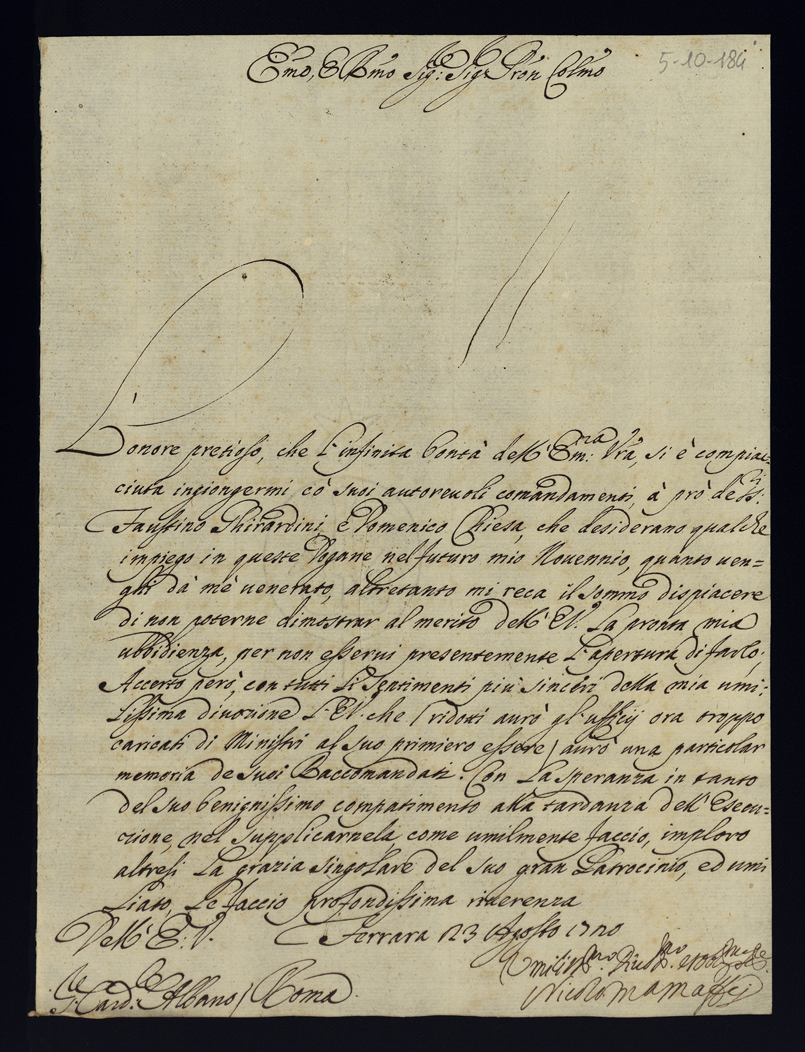 Emo, E Rmo Sig.re Sig.r Pron Colmo
5-10-184
L'onore pretioso, che l'infinita bontà dell'Em.za Vra, si è compiac=
ciuta ingiongermi, cò suoi autorevoli comandamenti, à prò de SS.ri
Faustino Ghirardini, e Domenico Chiesa, che desiderano qualche
impiego in queste Dogane nel futuro mio Novennio, quanto ven=
ghi dà mè venerato, altretanto mi reca il sommo dispiacere
di non poterne dimostrar al merito dell'E.V. la pronta mia
ubbidienza, per non esservi presentemente l'apertura di farlo;
Accerto però, con tutti li sentimenti più sinceri della mia umi=
lissima divozione l'E.V. che (ridotti aurò gl'ufficij ora troppo
caricati di Ministri al suo primiero essere) aurò una particolar
memoria de suoi Raccomandati: Con la speranza in tanto
del suo benignissimo compatimento alla tardanza dell'Esecu=
zione, nel supplicarnela come umilmente faccio, imploro
altresì la grazia singolare del suo gran Patrocinio, ed umi
liato, le faccio profondissima riverenza
Dell'E: V. Ferrara 23 Agosto 1720
Umiliss.mo Divo.mo
Nicolò
S.re Card.le Albano / Roma